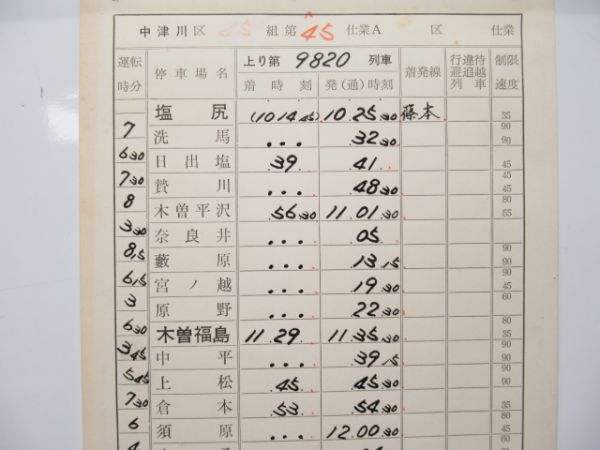 中津川区 組第 45 仕業A 区 仕業
運転時分 停車場名 上り第 9820 列車 着発線 行違待避追越列車 制限速度
着時刻 発(通)時刻
塩尻 (10 14 45) 10 25 30 35
7 90
洗馬 ... 32 30 90
6 30
日出塩 39 41 45
7 30 45
贄川 ... 48 30 45
8 80
木曽平沢 56 30 11 01 30 55
3 30
奈良井 ... 05
8 15 90
藪原 ... 13 15 90
6 15 90
宮ノ越 ... 19 30 45
3 60
原野 ... 22 30
6 30 80
木曽福島 11 29 11 35 30 35
3 45 90
中平 ... 39 15 90
5 45 90
上松 45 45 30 90
7 30
倉本 53 54 30 35
6 80
須原 ... 12 00 30 45
60